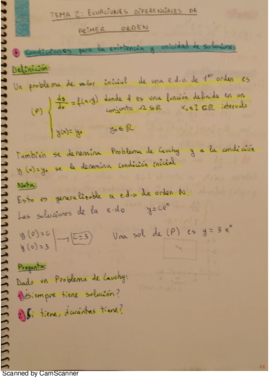 TEMA 2: ECUACIONES DIFERENCIALES DE
PRIMER ORDEN
Condiciones para la existencia y unicidad de soluciones
Definición
Un problema de valor inicial de una e.d.o. de 1er orden es
(P) { dy/dx = f(x,y) donde f es una función definida en un
conjunto Ω ⊆ ℝ² x₀ ∈ I ⊆ ℝ intervalo
y(x₀) = y₀ y₀ ∈ ℝ
También se denomina Problema de Cauchy y a la condición
y(x₀) = y₀ se la denomina condición inicial
Nota:
Esto es generalizable a e.d.o de orden n.
Las soluciones de la e.d.o
y(0) = C
y(0) = 3 → C = 3 Una sol de (P) es y = 3eˣ
Pregunta:
Dado un Problema de Cauchy:
¿Siempre tiene solución?
Si tiene, ¿cuántas tiene?
Scanned by CamScanner